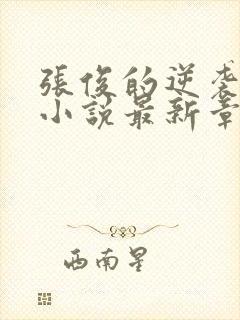 張俊的逆袭
小说最新章
西南星